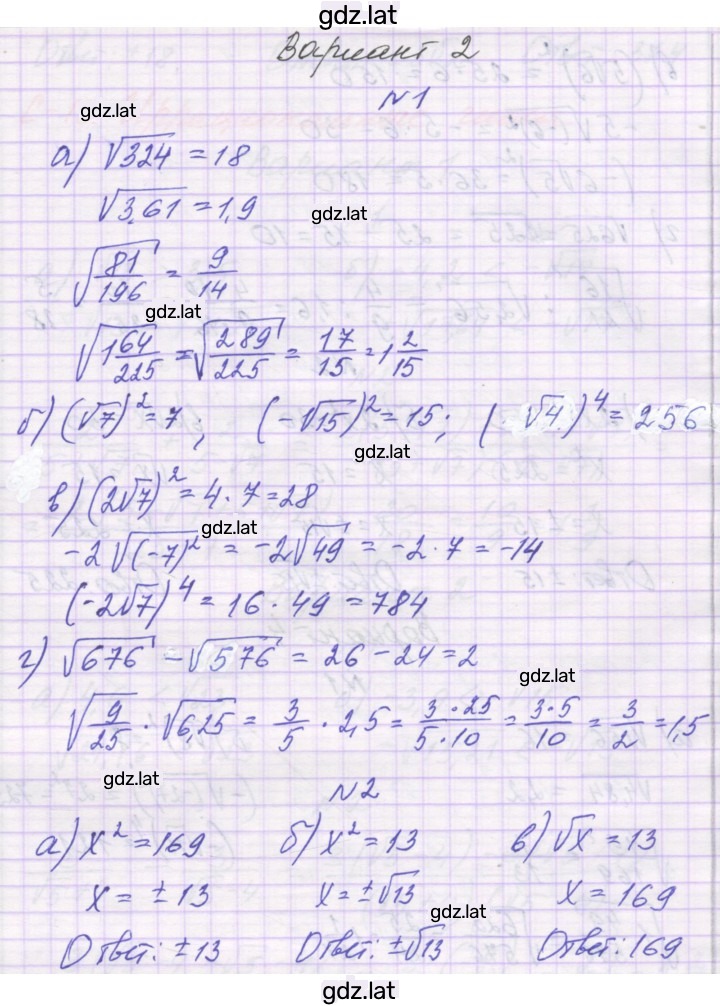 gdz.lat
Вариант 2
N1
gdz.lat
а) √324 = 18
√3,61 = 1,9
gdz.lat
√(81/196) = 9/14
gdz.lat
√(1 64/225) = √(289/225) = 17/15 = 1 2/15
б) (√7)² = 7 ; (-√15)² = 15; ( √4 )⁴ = 256
gdz.lat
в) (2√7)² = 4 · 7 = 28
gdz.lat
-2√(-7)² = -2√49 = -2 · 7 = -14
(-2√7)⁴ = 16 · 49 = 784
г) √676 - √576 = 26 - 24 = 2
gdz.lat
√(9/25) · √6,25 = 3/5 · 2,5 = (3 · 25)/(5 · 10) = (3 · 5)/10 = 3/2 = 1,5
gdz.lat
N2
а) x² = 169 б) x² = 13 в) √x = 13
x = ± 13 x = ±√13 x = 169
gdz.lat
Ответ: ±13 Ответ: ±√13 Ответ: 169
gdz.lat